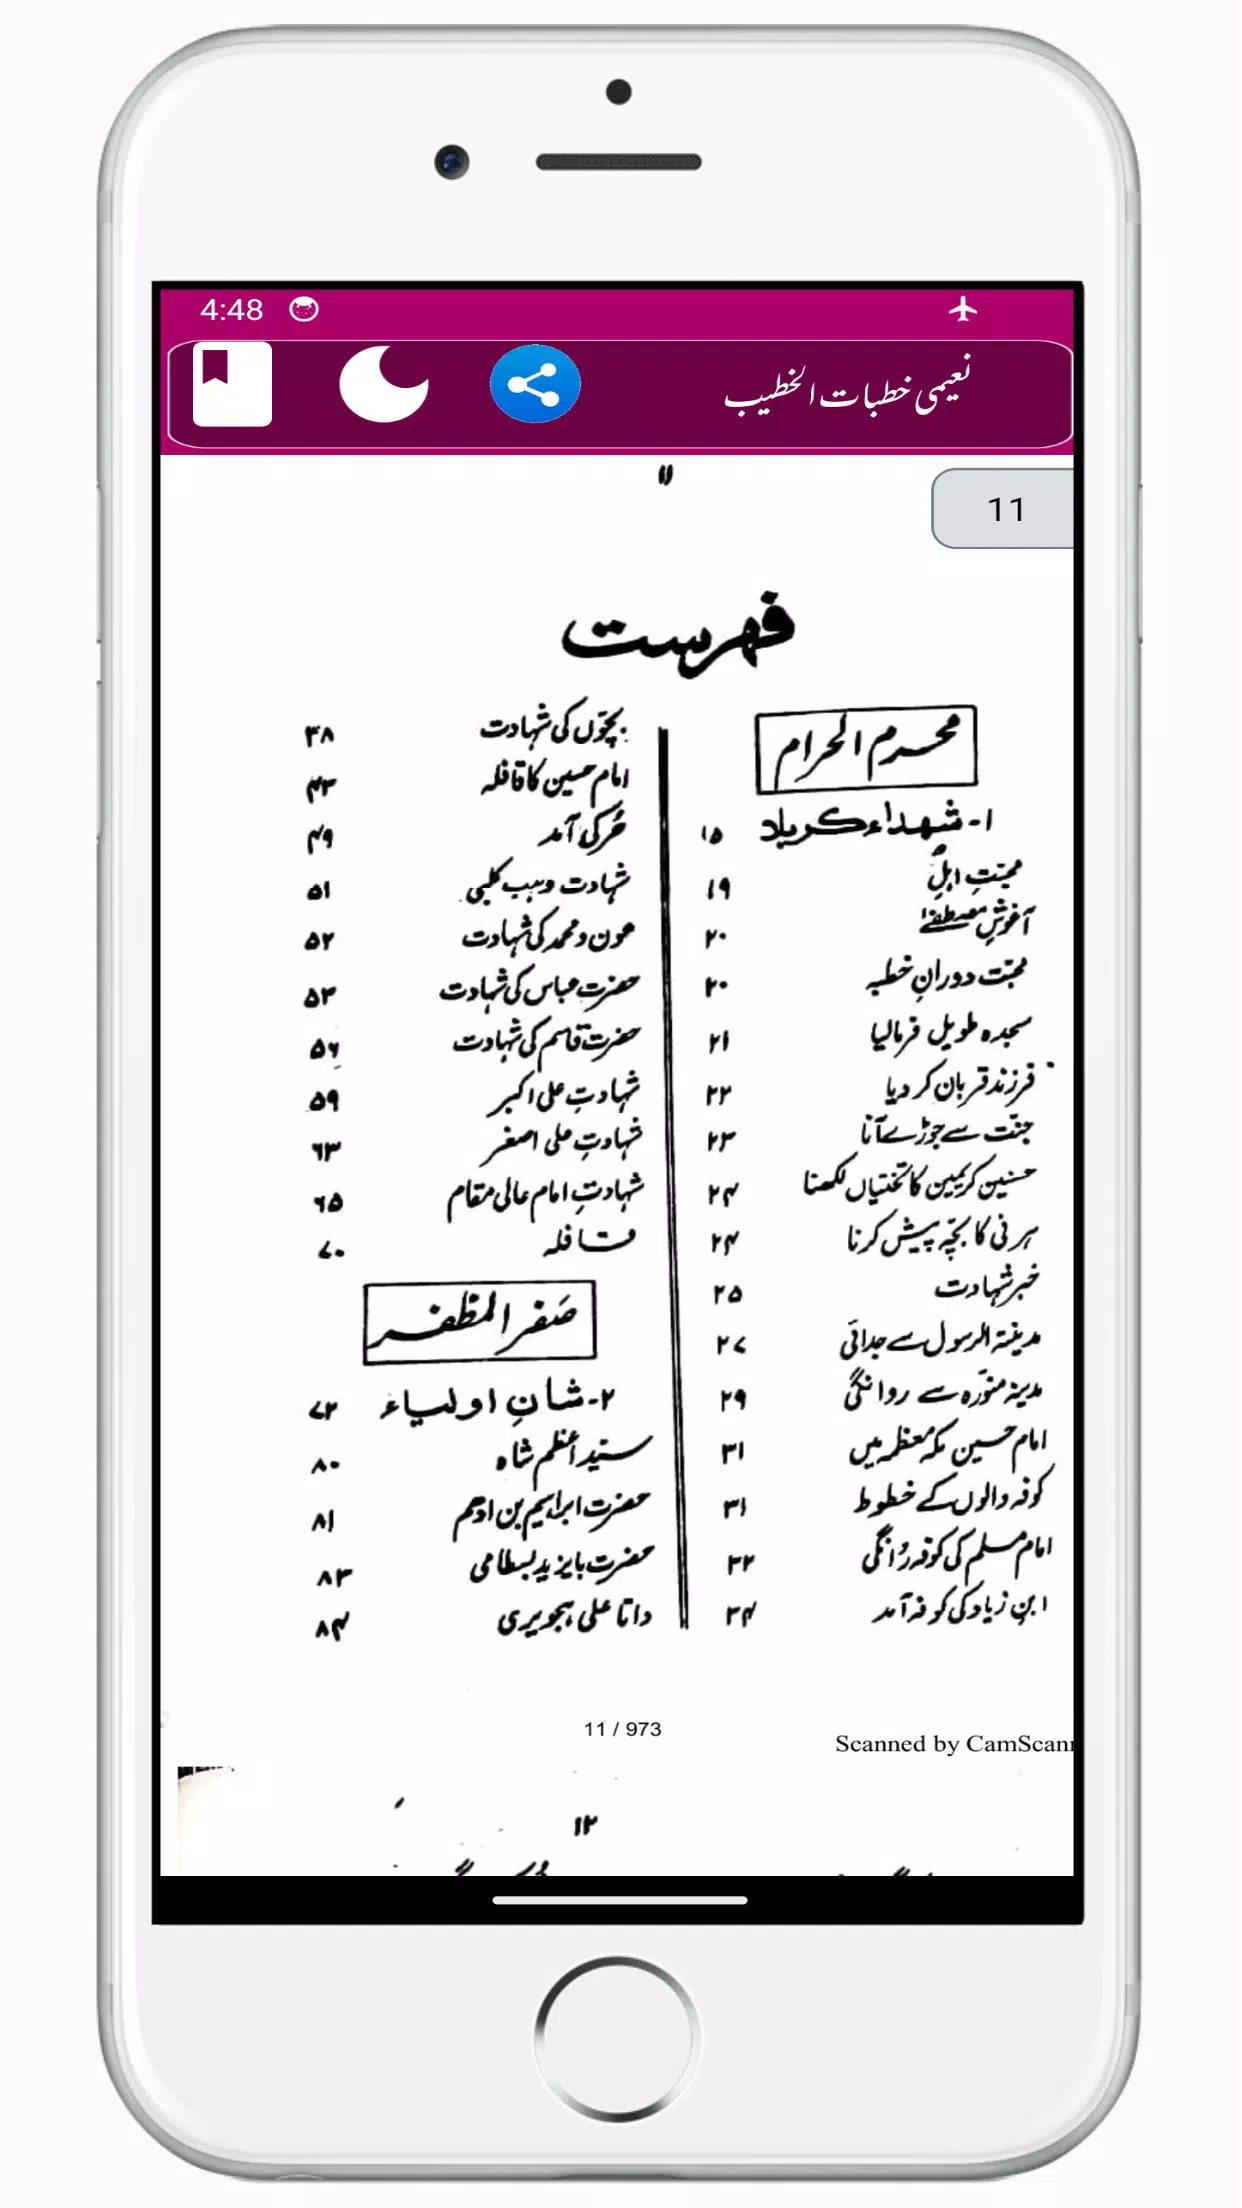 4:48
نعیمی خطبات الخطیب
۱۱
11
فہرست
محرم الحرام
۱۔ شہداء کربلا ۱۵
محبّتِ اہلِ ۱۹
آغوشِ مصطفےٰ ۲۰
محبّت دورانِ خطبہ ۲۰
سجدہ طویل فرمالیا ۲۱
فرزند قربان کر دیا ۲۲
جنّت سے جوڑے آنا ۲۳
حسنین کریمین کا تختیاں لکھنا ۲۴
ہرنی کا بچّہ پیش کرنا ۲۴
خبرِ شہادت ۲۵
مدینۃ الرسول سے جدائی ۲۷
مدینہ منوّرہ سے روانگی ۲۹
امام حسین مکہ معظمہ میں ۳۱
کوفہ والوں کے خطوط ۳۱
امام مسلم کی کوفہ روانگی ۳۲
ابنِ زیاد کی کوفہ آمد ۳۴
بچّوں کی شہادت ۳۸
امام حسین کا قافلہ ۴۳
حُر کی آمد ۴۹
شہادت وہب کلبی ۵۱
عون و محمد کی شہادت ۵۲
حضرت عباس کی شہادت ۵۳
حضرت قاسم کی شہادت ۵۶
شہادتِ علی اکبر ۵۹
شہادتِ علی اصغر ۶۳
شہادتِ امام عالی مقام ۶۵
قافلہ ۷۰
صَفر المظفر
۲۔ شانِ اولیاء ۷۲
سیّد اعظم شاہ ۸۰
حضرت ابراہیم بن ادہم ۸۱
حضرت بایزید بسطامی ۸۳
داتا علی ہجویری ۸۴
11 / 973
Scanned by CamScann
۱۲